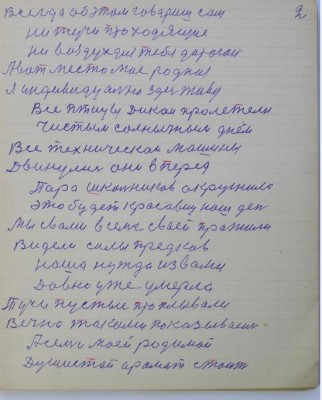 Всегда об этом говариш сам 2
Ни тучи проходящие
Ни воздух для тебя дорогой
Я индивидуално здесь живу
Все птицы дикой пролетели
Чистым солнычным днём
Все технические машины
Двинулис они вперед
Пара школников окружило
Это будет красавиц наш дет
Мы свами всеме своей прожили
Видели силы предков
Наша нужда из вами
Довно уже умерла
Тучи пустые проплывали
Вечно такими показывали
Земли моей родимой
Душистой аромат стоит